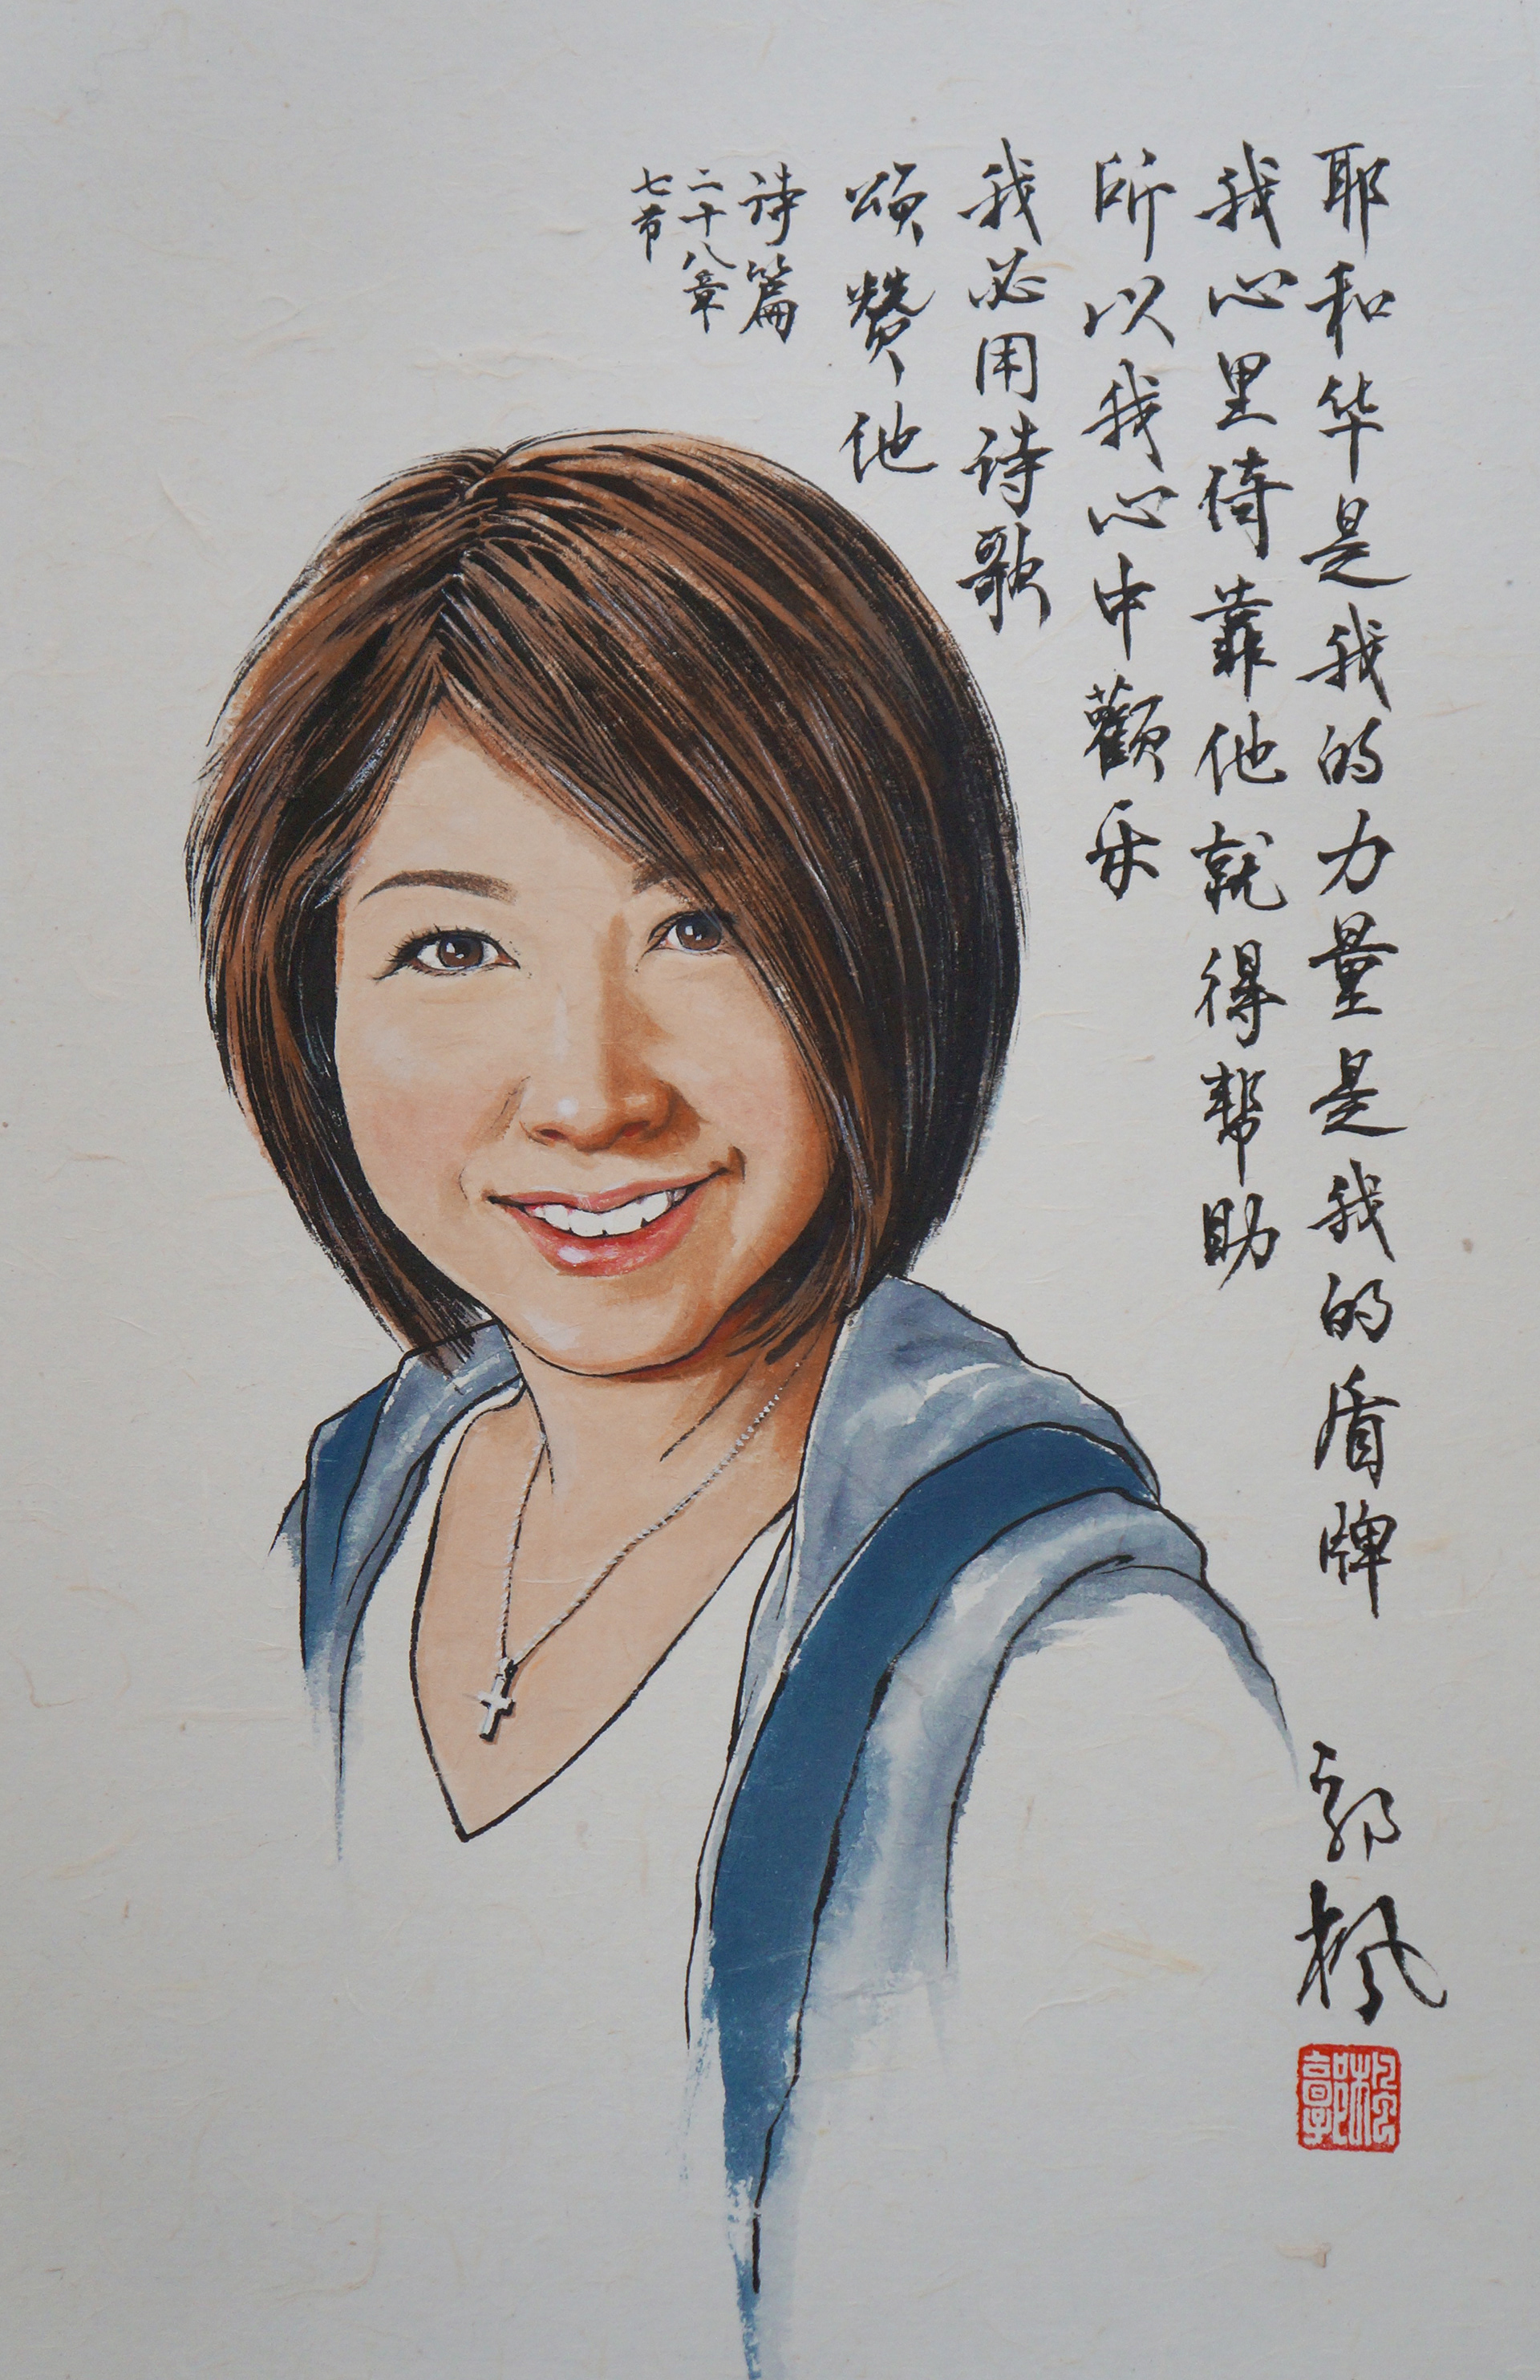 耶和华是我的力量是我的盾牌
我心里倚靠他就得帮助
所以我心中顴乐
我必用诗歌
頌赞他
诗篇
二十八章
七节
郭枫